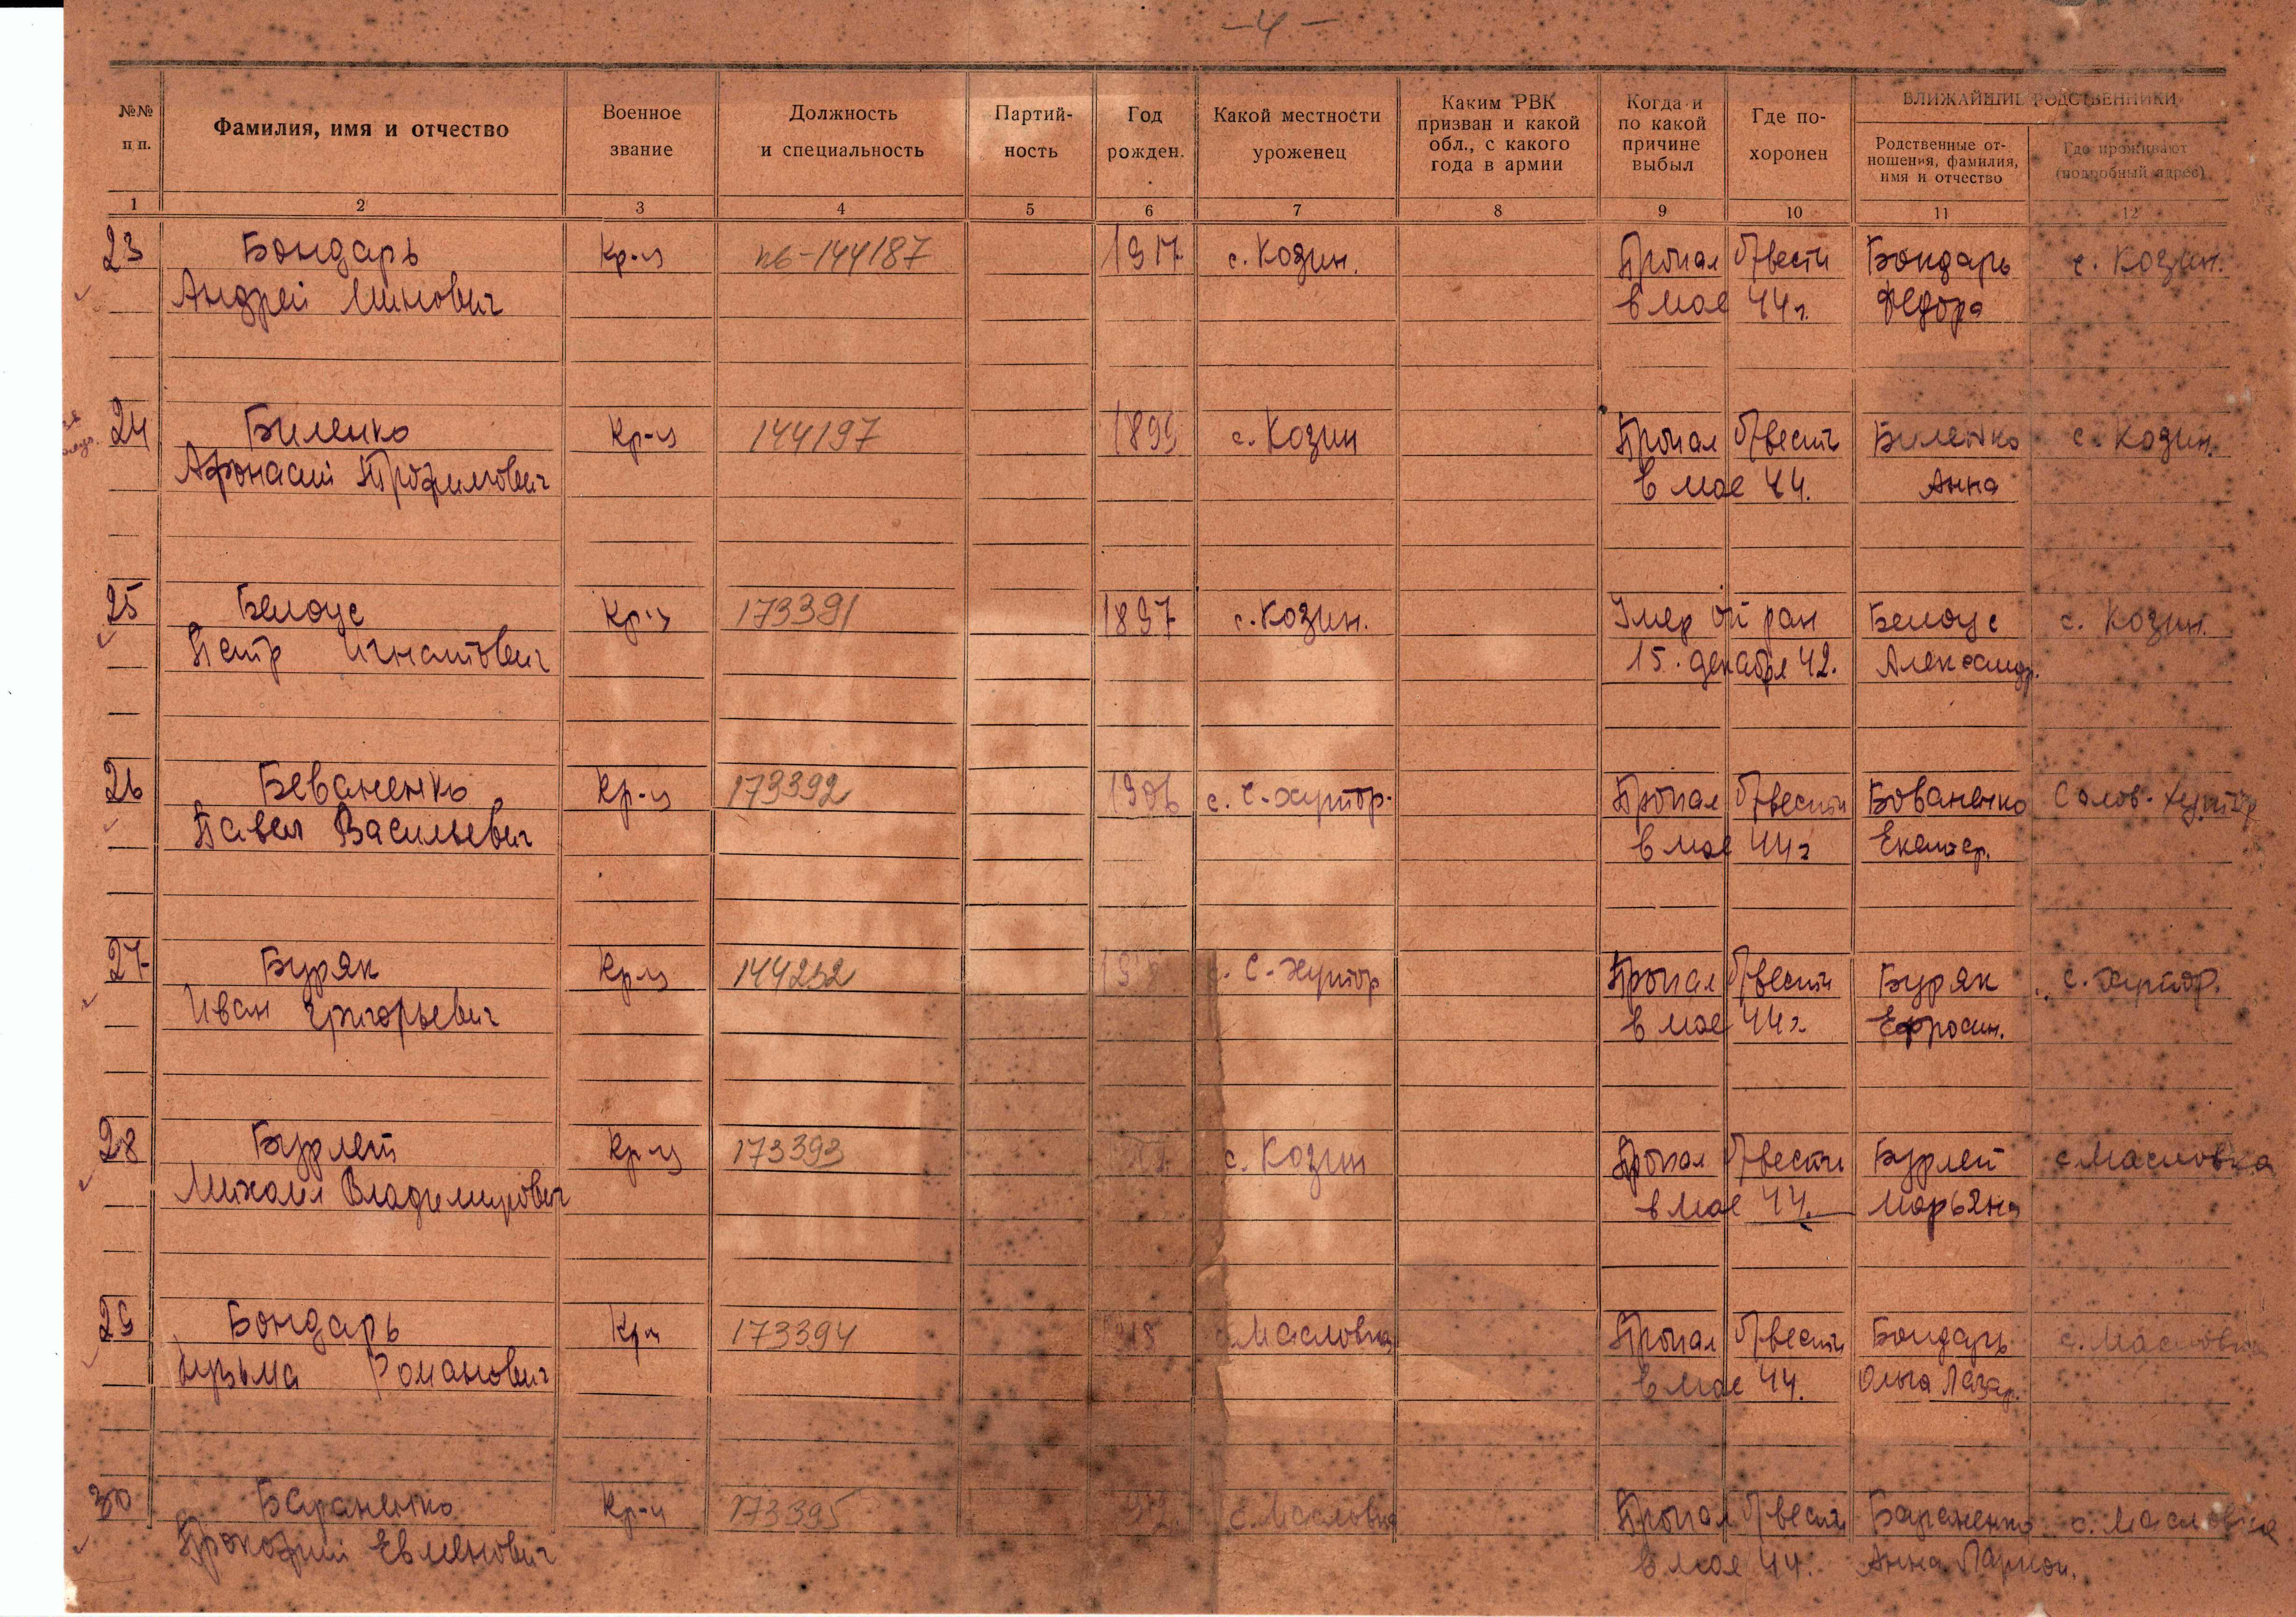 -4-
№№ п п.
Фамилия, имя и отчество
Военное звание
Должность и специальность
Партий-ность
Год рожден.
Какой местности уроженец
Каким РВК призван и какой обл., с какого года в армии
Когда и по какой причине выбыл
Где по-хоронен
БЛИЖАЙШИЕ РОДСТВЕННИКИ
Родственные от-ношения, фамилия, имя и отчество
Где проживают (подробный адрес)
1 2 3 4 5 6 7 8 9 10 11 12
23 Бондарь Кр-ц нб-144187 1917 с. Козин. Пропал б/вести Бондарь с. Козин.
Андрей Минович в мае 44г. Федора
24 Биленко Кр-ц 144197 1899 с. Козин Пропал б/вести Биленко с. Козин.
Афонасий Трофимович в мае 44. Анна
25 Белоус Кр-ц 173391 1897 с. Козин. Умер от ран Белоус с. Козин.
Петр Игнатович 15. декабря 42. Александр.
26 Беваненко Кр-ц 173392 1906 с. С-хутор. Пропал б/вести Бованенко Солов-хутор
Павел Васильевич в мае 44г Екатер.
27 Буряк Кр-ц 144252 с. С-хутор Пропал б/вести Буряк с. хутор.
Иван Григорьевич в мае 44г. Ефросин.
28 Бурлей Кр-ц 173393 с. Козин Пропал б/вести Бурлей с Масловка
Михаил Владимирович в мае 44. Марьяна
29 Бондарь Кр-ц 173394 Масловка Пропал б/вести Бондарь с. Масловка
Кузьма Романович в мае 44. Ольга Лазар.
30 Бараненко Кр-ц 173395 с. Масловка Пропал б/вести Бараненко с. Масловка
Прокофий Евменович в мае 44. Анна